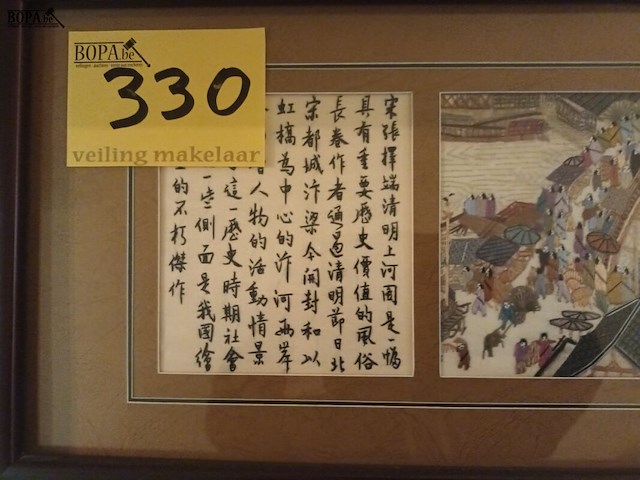 BOPA.be
BOPA.be
veilingen auctions ventes aux enchères
330
veiling makelaar
宋張擇端清明上河圖是一幅
具有重要歷史價值的風俗
長卷作者通過清明節日北
宋都城汴梁今開封和以
虹橋為中心的汴河兩岸
人物的活動情景
這一歷史時期社會
一些側面是我國繪
的不朽傑作